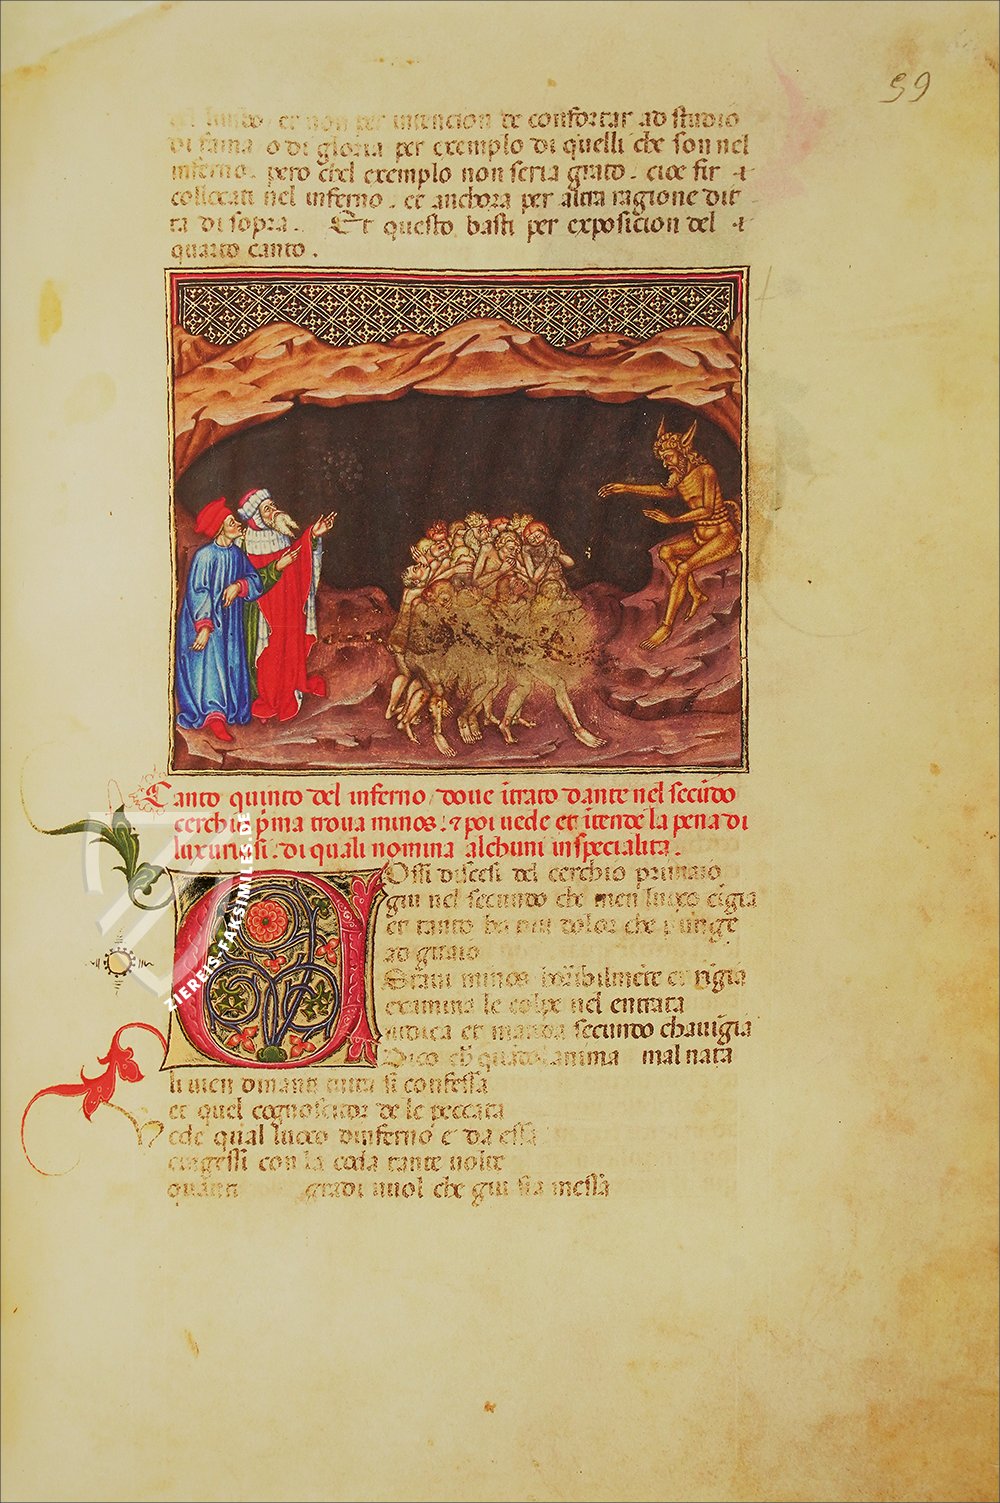 59
del limbo. et non per intencion de confortar ad studio
di fama o di gloria per exemplo di quelli che son nel
inferno. pero chel exemplo non seria grato. cioe fir
collocati nel inferno. et anchora per altra ragione dit
ta di sopra. Et questo basti per exposicion del
quarto canto.
Canto quinto del inferno doue ītrato dante nel secūdo
cerchio pͥma troua minos. ⁊ poi uede et ītende la pena di
luxuriosi. di quali nomina alchuni in specialita.
Ossi discesi del cerchio primaio
giu nel secundo che men luoco cigia
et tanto ha piu dolor che punge
ad guaio
Staui minos et rigia
examina le colpe nel entrata
iudica et manda secundo chauigia
Dico anima mal nata
li uien dinanti tutta si confessa
et quel cognoscitor de le peccata
uede qual luoco dinferno e da essa
cingessi con la coda tante uolte
quanti gradi uuol che giu sia messa
ZIEREIS-FAKSIMILES.DE